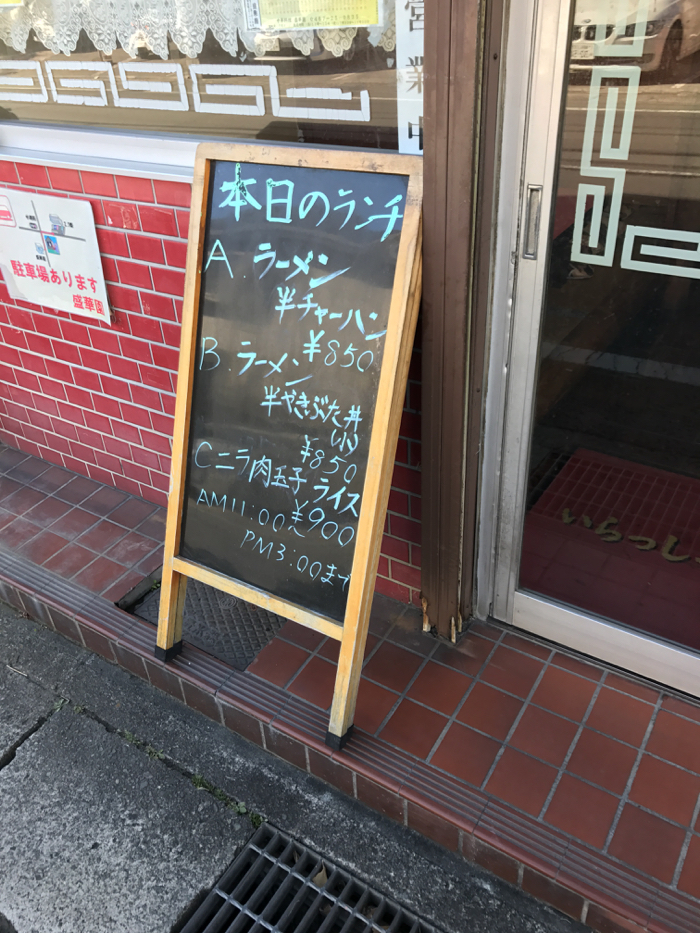 営業中
駐車場あります
盛華園
本日のランチ
A. ラーメン
半チャーハン
¥850
B. ラーメン
半やきぶた丼
小
¥850
C ニラ肉玉子 ライス
¥900
AM11:00〜
PM3:00まで
いらっし